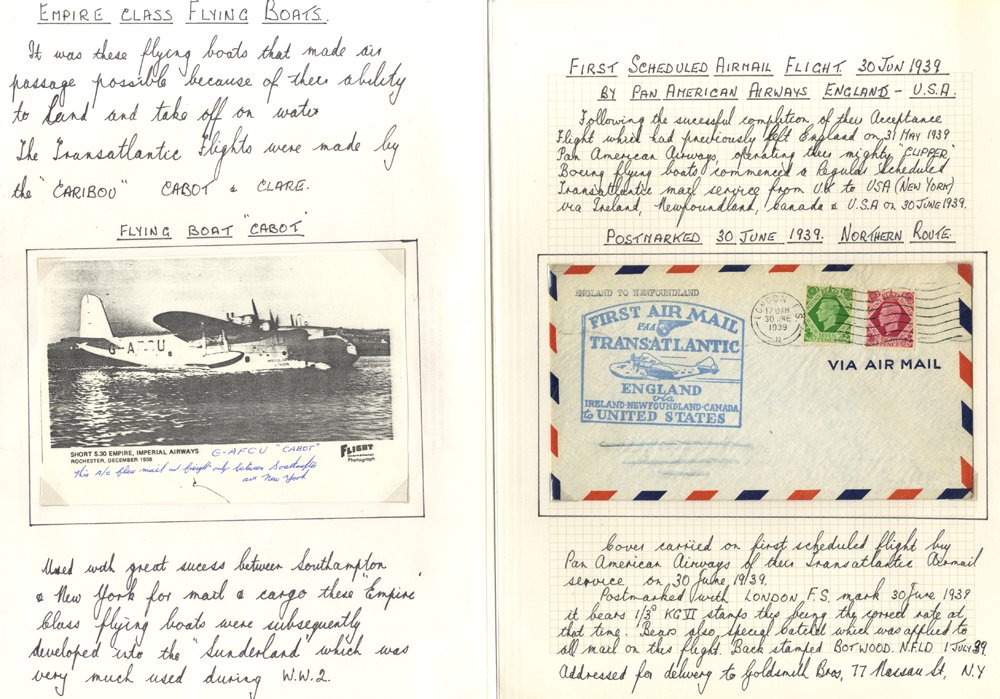 EMPIRE CLASS FLYING BOATS.
It was these flying boats that made air
passage possible because of their ability
to land and take off on water
The Transatlantic Flights were made by
the "CARIBOU" CABOT & CLARE.
FLYING BOAT "CABOT"
G-AFCU
SHORT S.30 EMPIRE, IMPERIAL AIRWAYS G-AFCU "CABOT"
ROCHESTER, DECEMBER 1938
FLIGHT
International
Photograph
This A/c flew mail and freight only between Southampton
and New York
Used with great sucess between Southampton
& New York for mail & cargo these "Empire"
Class flying boats were subsequently
developed into the "Sunderland" which was
very much used during W.W.2.
FIRST SCHEDULED AIRMAIL FLIGHT. 30 JUN 1939
BY PAN AMERICAN AIRWAYS ENGLAND - U.S.A.
Following the sucessful completion of their Acceptance
Flight which had previously left England on 31 MAY 1939
Pan American Airways, operating their mighty "CLIPPER"
Boeing flying boats commenced a Regular Scheduled
Transatlantic mail service from U.K to USA (NEW YORK)
via Ireland, Newfoundland, Canada & U.S.A on 30 JUNE 1939.
POSTMARKED 30 JUNE 1939. NORTHERN ROUTE.
ENGLAND TO NEWFOUNDLAND
FIRST AIR MAIL
PAA
TRANSATLANTIC
ENGLAND
via
IRELAND-NEWFOUNDLAND-CANADA
to UNITED STATES
LONDON F.S.
12 AM
30 JNE
1939
N
VIA AIR MAIL
Cover carried on first scheduled flight by
Pan American Airways of their Transatlantic Airmail
service on 30 June 19/39.
Postmarked with LONDON F.S. mark 30 June 1939
it bears 1/3ᴰ KG VI stamps this being the correct rate at
that time. Bears also, special catchet which was applied to
all mail on this flight. Back stamped BOTWOOD. N.FLD 1 JULY 39
Addressed for delivery to Goldsmith Bros, 77 Nassau St, N.Y